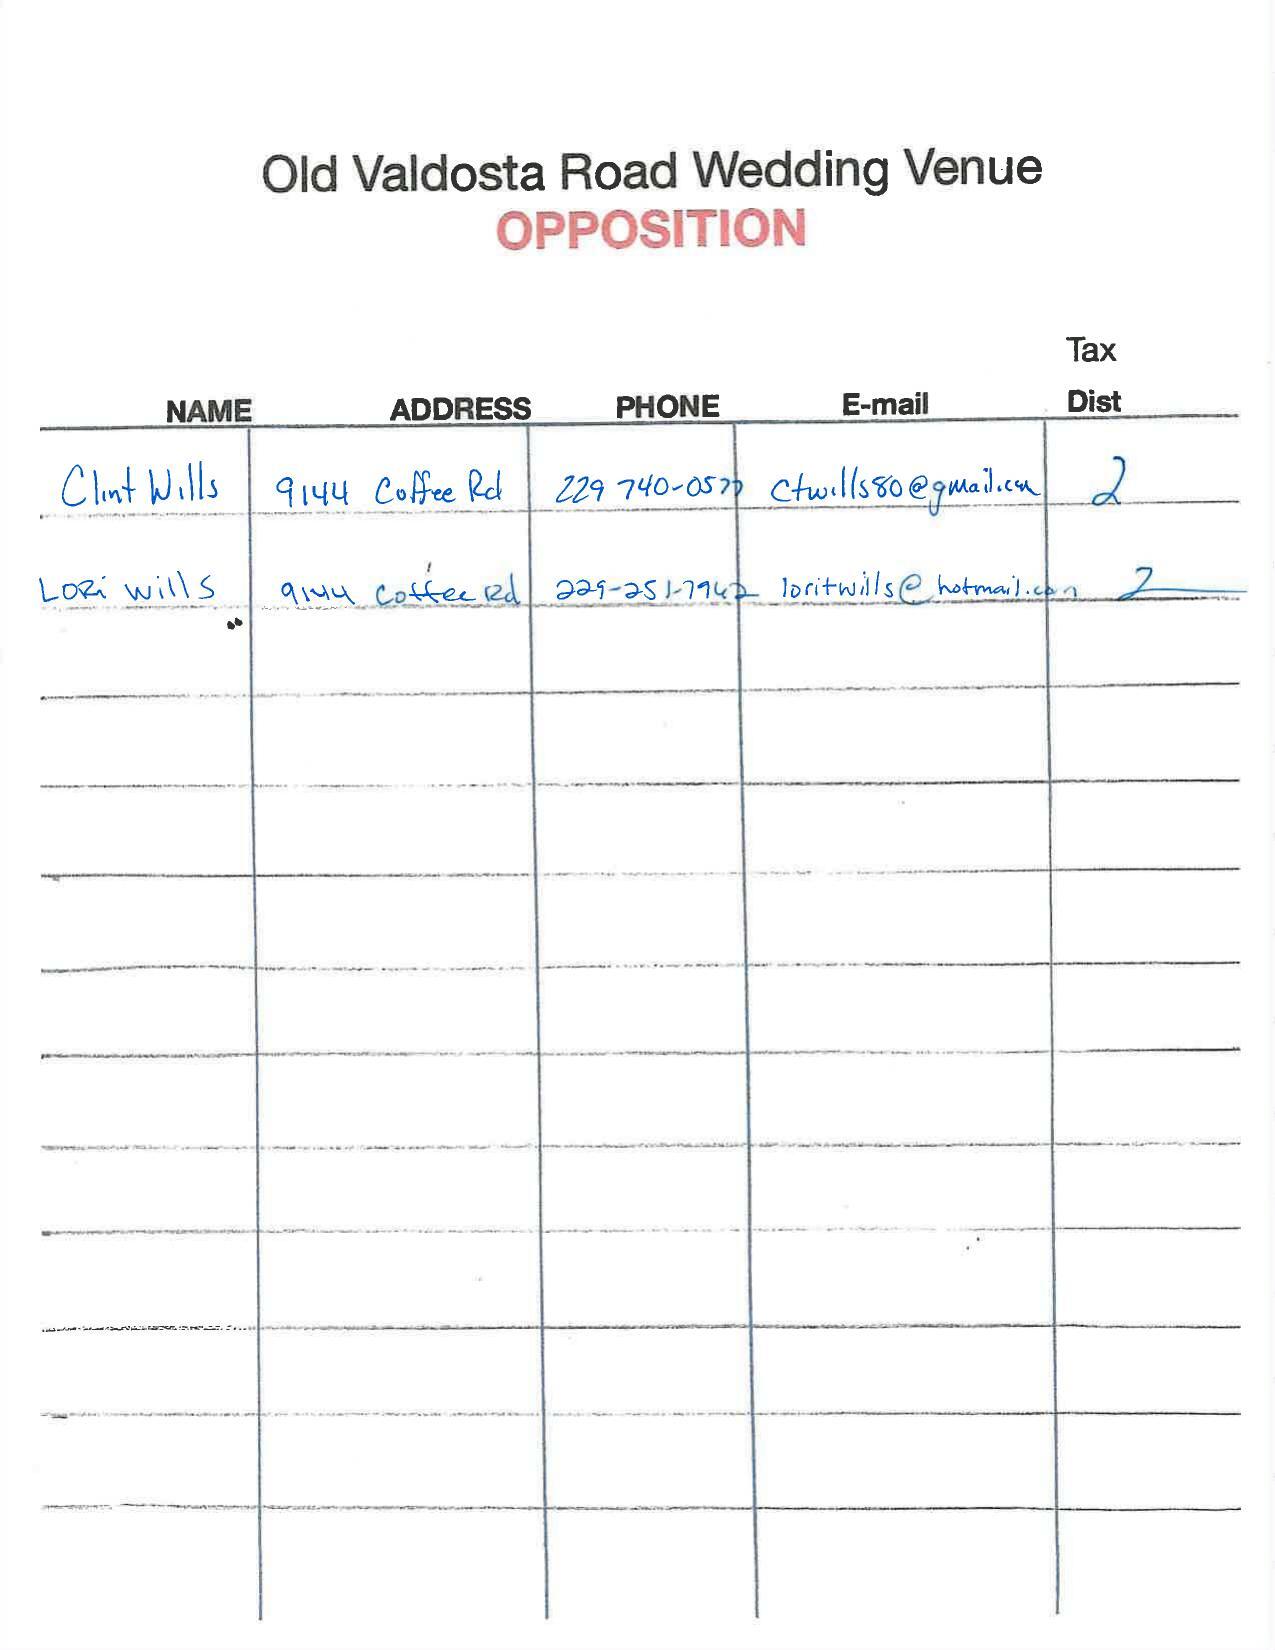 Old Valdosta Road Wedding Venue
OPPOSITION
Tax
NAME ADDRESS PHONE E-mail Dist
Clint Wills 9144 Coffee Rd 229 740-0577 ctwills80@gmail.com 2
LORi wills 9144 Coffee Rd 229-251-7942 loritwills@hotmail.com 2